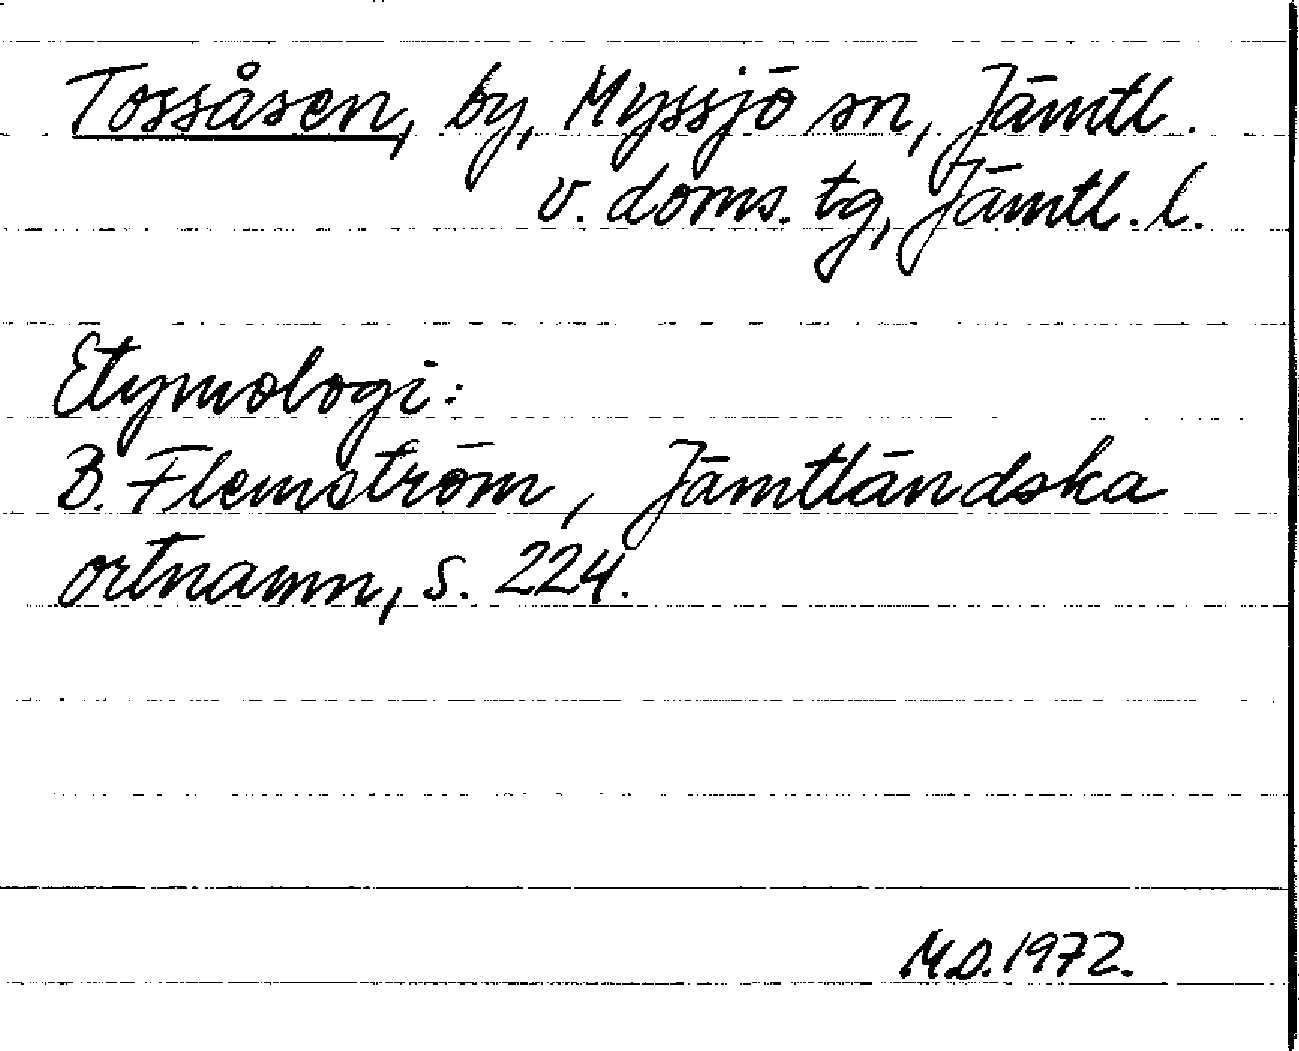 Tossåsen, by, Myssjö sn, Jämtl.
v. doms. tg, Jämtl. l.
Etymologi:
B. Flemström, Jämtländska
ortnamn, s. 224.
M.D. 1972.